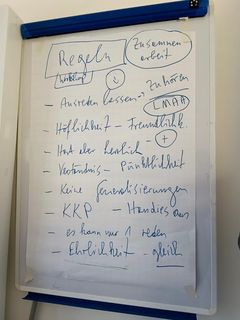 Regeln
Zusammen-
arbeit
- Ausreden lassen → Zuhören
LMAA
- Höflichkeit - Freundlichk.
- Hart aber herzlich - +
- Verständnis - Pünktlichkeit
- Keine Generalisierungen
- KKP - Handies aus
- es kann nur 1 reden
- Ehrlichkeit - gleich